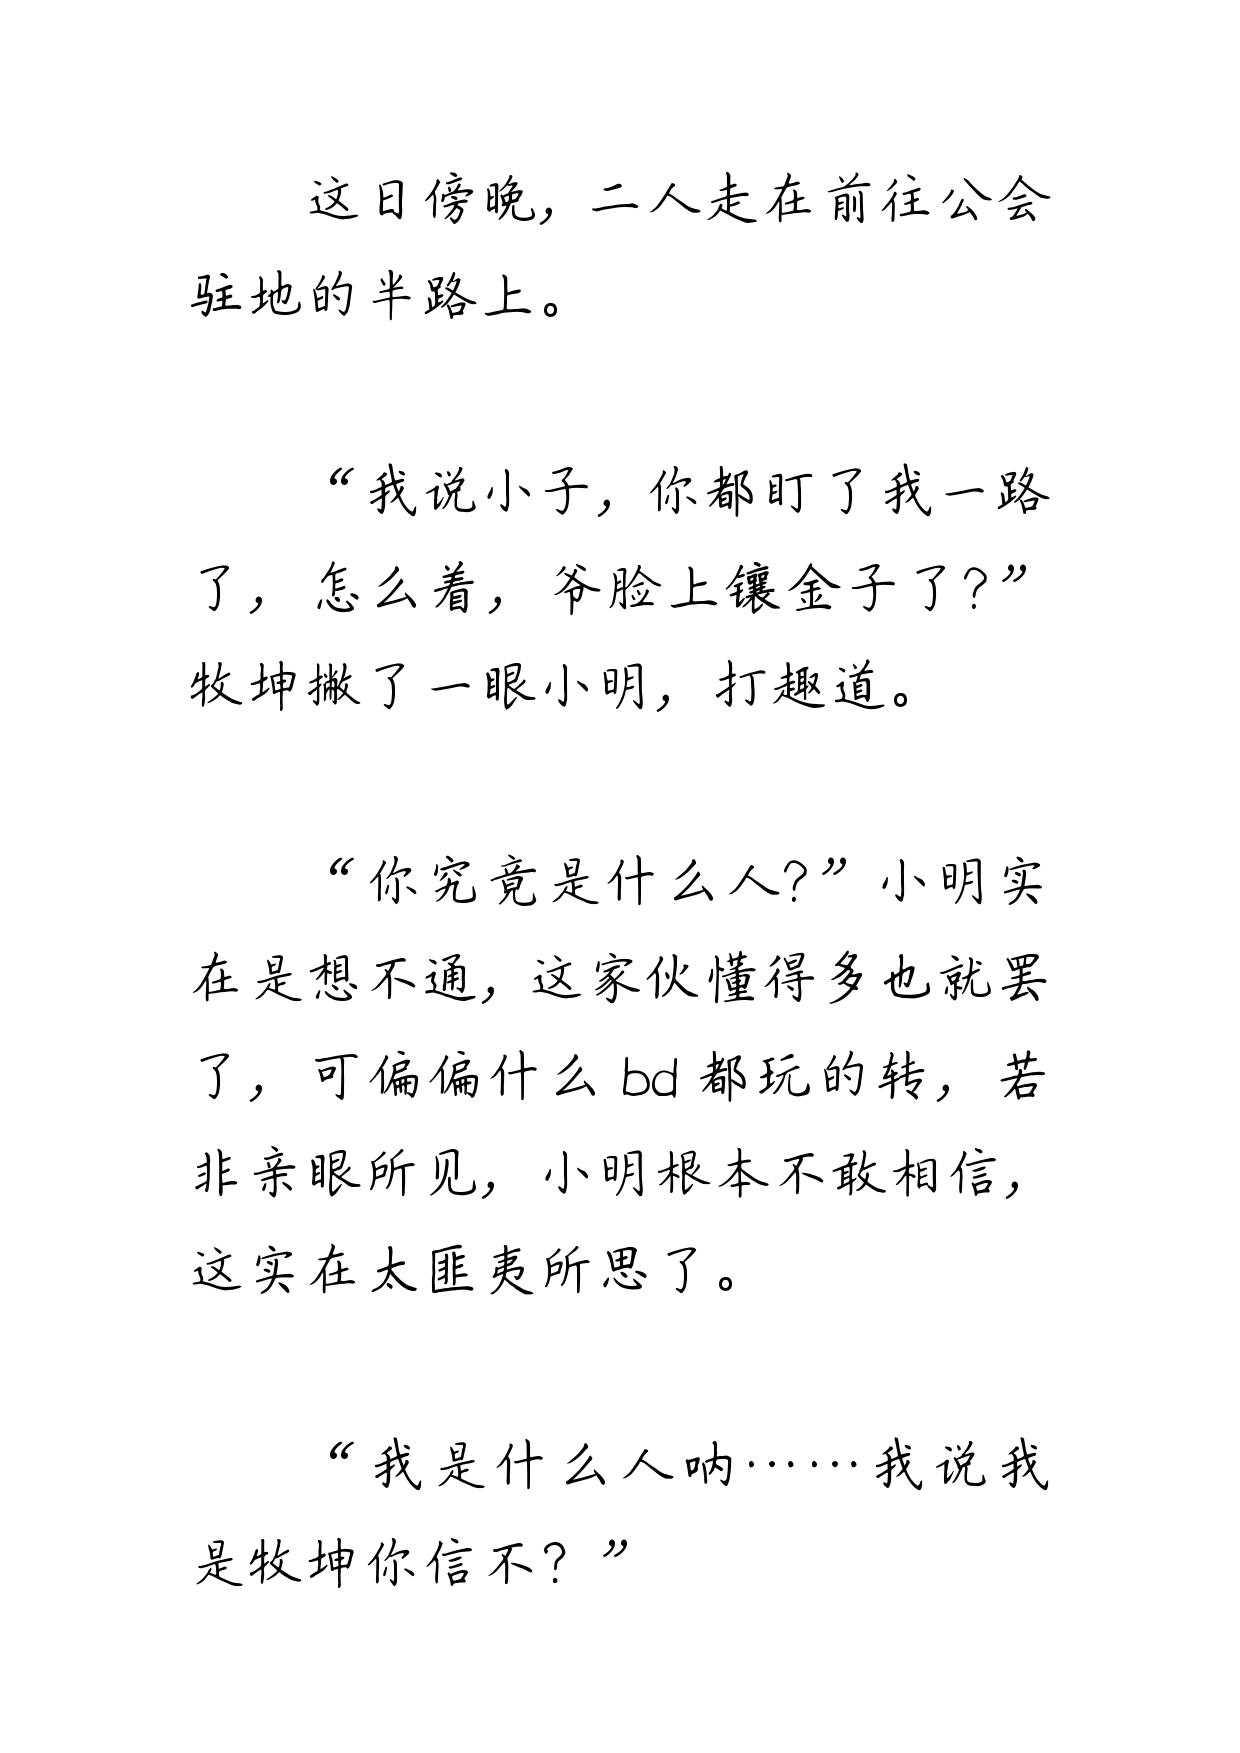 这日傍晚，二人走在前往公会
驻地的半路上。
“我说小子，你都盯了我一路
了，怎么着，爷脸上镶金子了？”
牧坤撇了一眼小明，打趣道。
“你究竟是什么人？”小明实
在是想不通，这家伙懂得多也就罢
了，可偏偏什么 bd 都玩的转，若
非亲眼所见，小明根本不敢相信，
这实在太匪夷所思了。
“我是什么人呐……我说我
是牧坤你信不？”